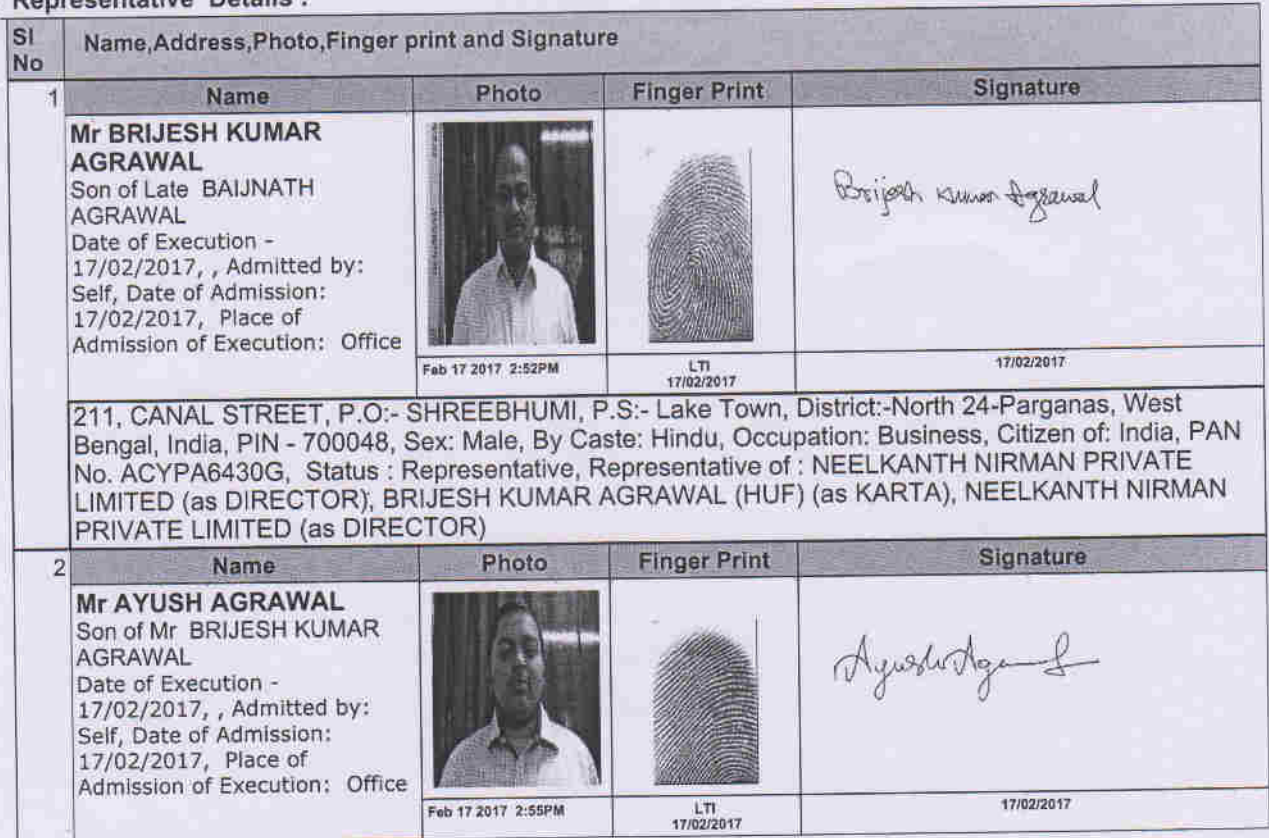 Representative Details :
SI No
Name,Address,Photo,Finger print and Signature
1
Name
Photo
Finger Print
Signature
Mr BRIJESH KUMAR
AGRAWAL
Son of Late BAIJNATH
AGRAWAL
Date of Execution -
17/02/2017, , Admitted by:
Self, Date of Admission:
17/02/2017, Place of
Admission of Execution: Office
Feb 17 2017 2:52PM
LTI
17/02/2017
Brijesh Kumar Agrawal
17/02/2017
211, CANAL STREET, P.O:- SHREEBHUMI, P.S:- Lake Town, District:-North 24-Parganas, West
Bengal, India, PIN - 700048, Sex: Male, By Caste: Hindu, Occupation: Business, Citizen of: India, PAN
No. ACYPA6430G, Status : Representative, Representative of : NEELKANTH NIRMAN PRIVATE
LIMITED (as DIRECTOR), BRIJESH KUMAR AGRAWAL (HUF) (as KARTA), NEELKANTH NIRMAN
PRIVATE LIMITED (as DIRECTOR)
2
Name
Photo
Finger Print
Signature
Mr AYUSH AGRAWAL
Son of Mr BRIJESH KUMAR
AGRAWAL
Date of Execution -
17/02/2017, , Admitted by:
Self, Date of Admission:
17/02/2017, Place of
Admission of Execution: Office
Feb 17 2017 2:55PM
LTI
17/02/2017
Ayush
17/02/2017